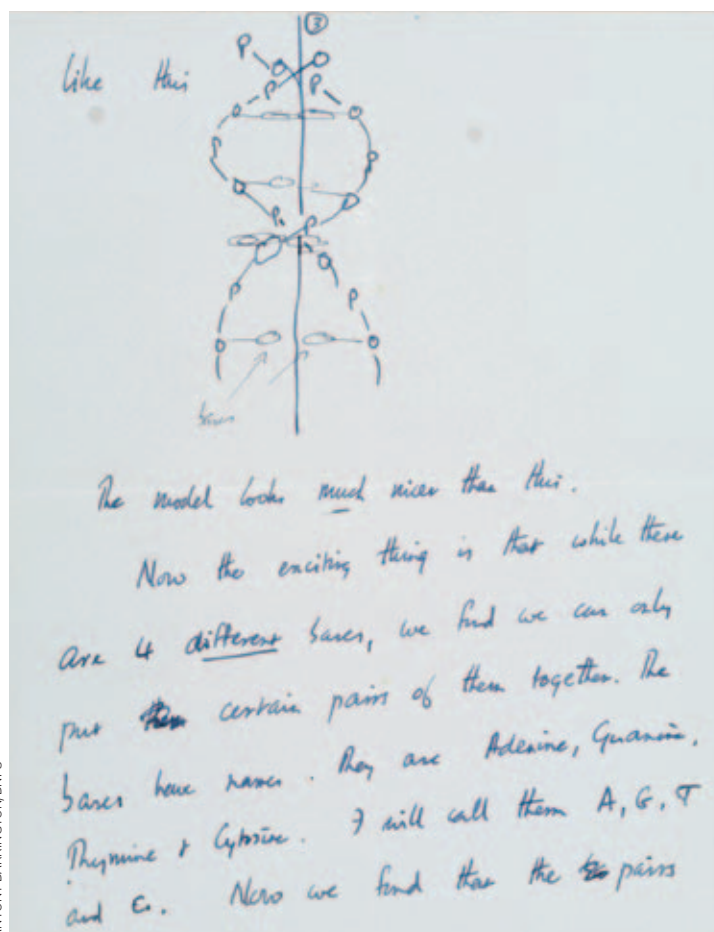 ③
like this
P
P P
P P
P P
P P
bases
The model looks much nicer than this.
Now the exciting thing is that while there
are 4 different bases, we find we can only
put certain pairs of them together. The
bases have names. They are Adenine, Guanine,
Thymine & Cytosine. I will call them A, G, T
and C. Now we find that the pairs